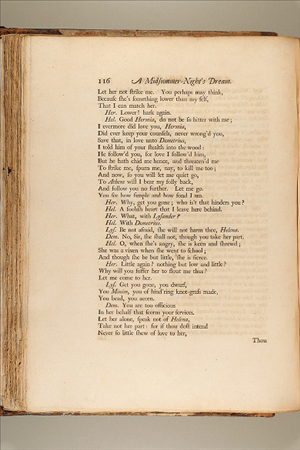 116 A Midsummer-Night's Dream.
Let her not strike me. You perhaps may think,
Because she's something lower than my self,
That I can match her.
Her. Lower? hark again.
Hel. Good Hermia, do not be so bitter with me;
I evermore did love you, Hermia,
Did ever keep your counsels, never wrong'd you,
Save that, in love unto Demetrius,
I told him of your stealth into the wood:
He follow'd you, for love I follow'd him,
But he hath chid me hence, and threaten'd me
To strike me, spurn me, nay, to kill me too;
And now, so you will let me quiet go,
To Athens will I bear my folly back,
And follow you no further. Let me go.
You see how simple and how fond I am.
Her. Why, get you gone; who is't that hinders you?
Hel. A foolish heart that I leave here behind.
Her. What, with Lysander?
Hel. With Demetrius.
Lys. Be not afraid, she will not harm thee, Helena.
Dem. No, Sir, she shall not, though you take her part.
Hel. O, when she's angry, she is keen and shrewd;
She was a vixen when she went to school;
And though she be but little, she is fierce.
Her. Little again? nothing but low and little?
Why will you suffer her to flout me thus?
Let me come to her.
Lys. Get you gone, you dwarf,
You Minim, you of hind'ring knot-grass made,
You bead, you acorn.
Dem. You are too officious
In her behalf that scorns your services.
Let her alone, speak not of Helena,
Take not her part: for if thou dost intend
Never so little shew of love to her,
Thou